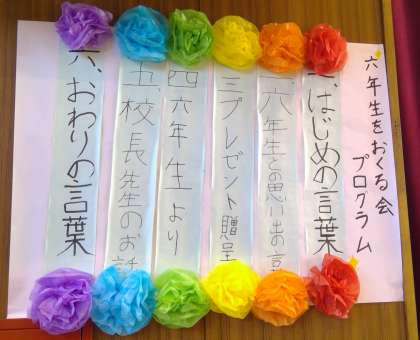 六年生をおくる会
プログラム
一、はじめの言葉
二、六年生との思い出の言
三プレゼント贈呈
四六年生より
五、校長先生のお話
六、おわりの言葉